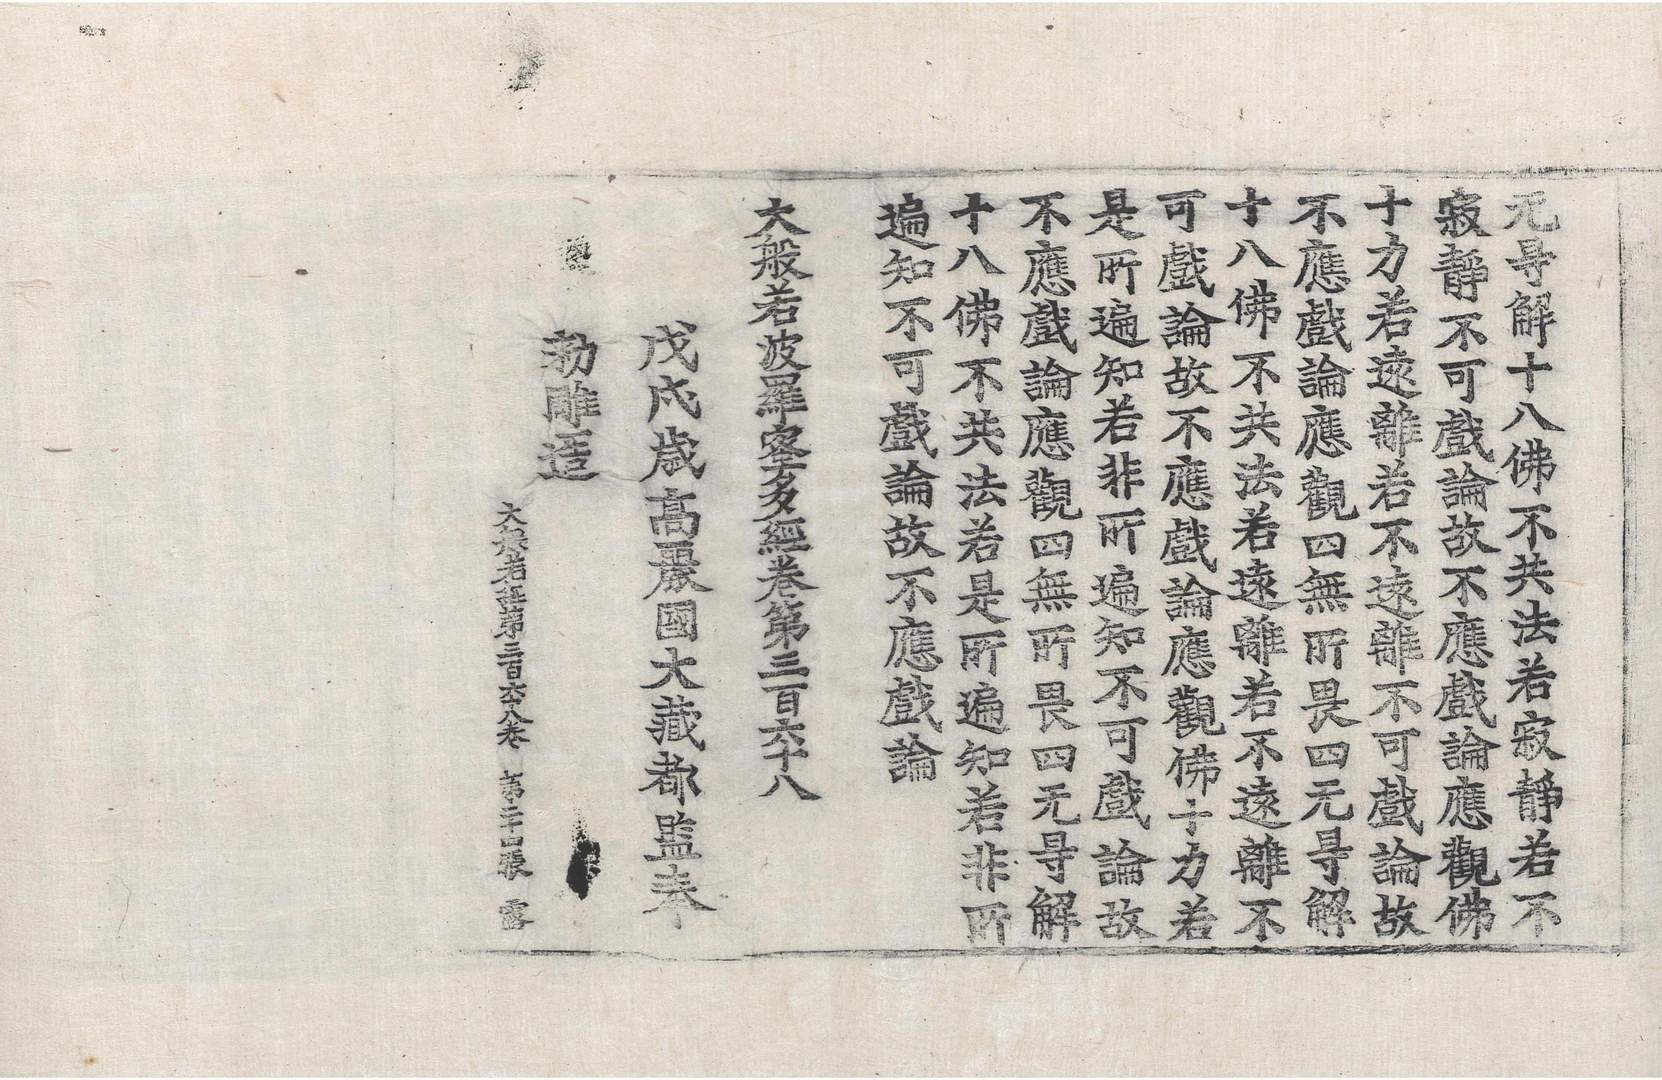 无㝵解十八佛不共法若寂靜若不
寂靜不可戲論故不應戲論應觀佛
十力若遠離若不遠離不可戲論故
不應戲論應觀四無所畏四无㝵解
十八佛不共法若遠離若不遠離不
可戲論故不應戲論應觀佛十力若
是所遍知若非所遍知不可戲論故
不應戲論應觀四無所畏四无㝵解
十八佛不共法若是所遍知若非所
遍知不可戲論故不應戲論
大般若波羅蜜多經卷第三百六十八
戊戌歲高麗國大藏都監奉
勑雕造
大般若經第三百六十八卷 第二十四張